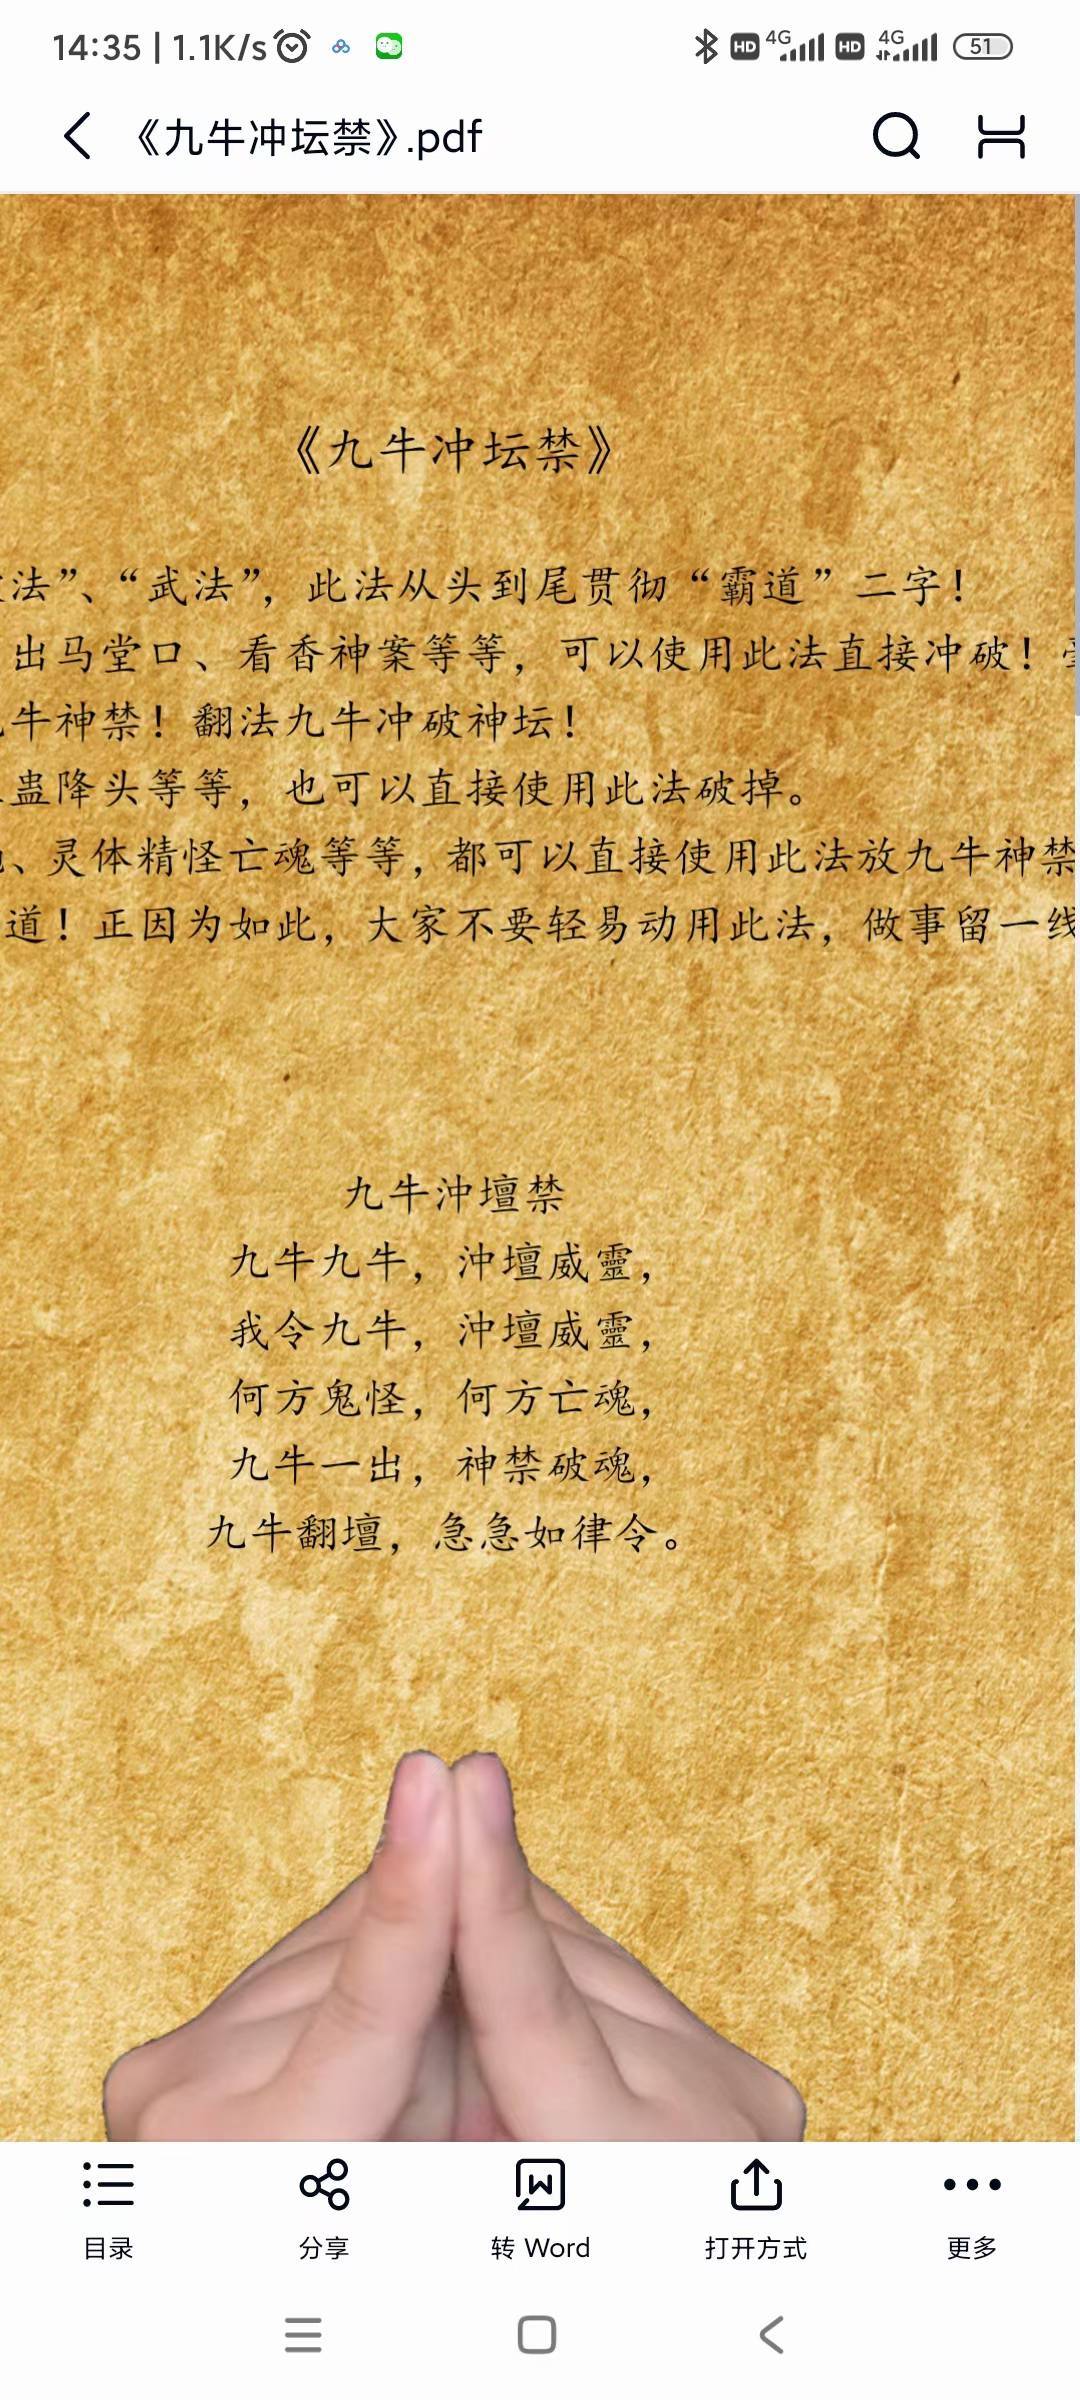 14:35 | 1.1K/s
HD 4G HD 4G 51
《九牛冲坛禁》.pdf
《九牛冲坛禁》
法”、“武法”，此法从头到尾贯彻“霸道”二字！
出马堂口、看香神案等等，可以使用此法直接冲破！
牛神禁！翻法九牛冲破神坛！
蛊降头等等，也可以直接使用此法破掉。
、灵体精怪亡魂等等，都可以直接使用此法放九牛神禁
道！正因为如此，大家不要轻易动用此法，做事留一线
九牛沖壇禁
九牛九牛，沖壇威靈，
我令九牛，沖壇威靈，
何方鬼怪，何方亡魂，
九牛一出，神禁破魂，
九牛翻壇，急急如律令。
目录
分享
转 Word
打开方式
更多